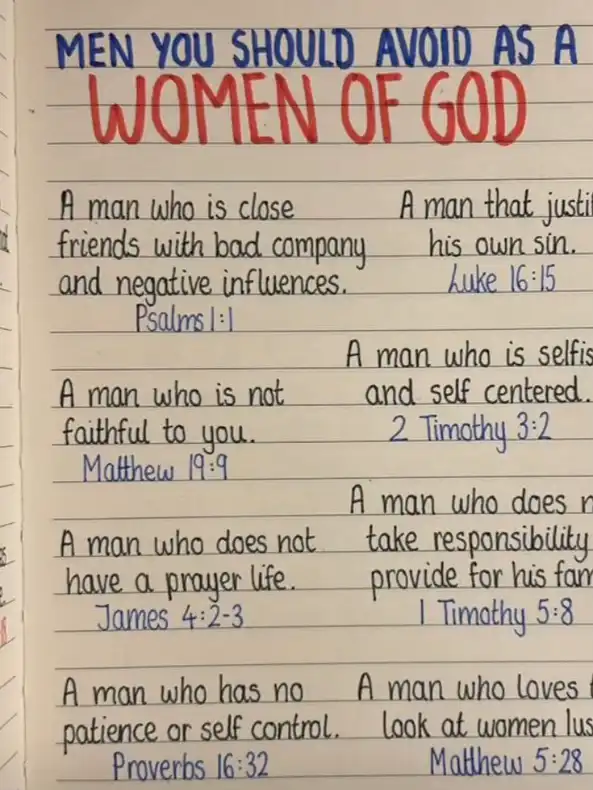 MEN YOU SHOULD AVOID AS A
WOMEN OF GOD
A man who is close
friends with bad company
and negative influences.
Psalms 1:1
A man who is not
faithful to you.
Matthew 19:9
A man who does not
have a prayer life.
James 4:2-3
A man who has no
patience or self control.
Proverbs 16:32
A man that
his own sin.
Luke 16:15
A man who is
and self centered.
2 Timothy 3:2
A man who does
take responsibility
provide for his
1 Timothy 5:8
A man who loves
look at women
Matthew 5:28